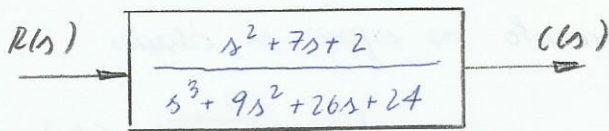 R(s)
s² + 7s + 2
s³ + 9s² + 26s + 24
C(s)